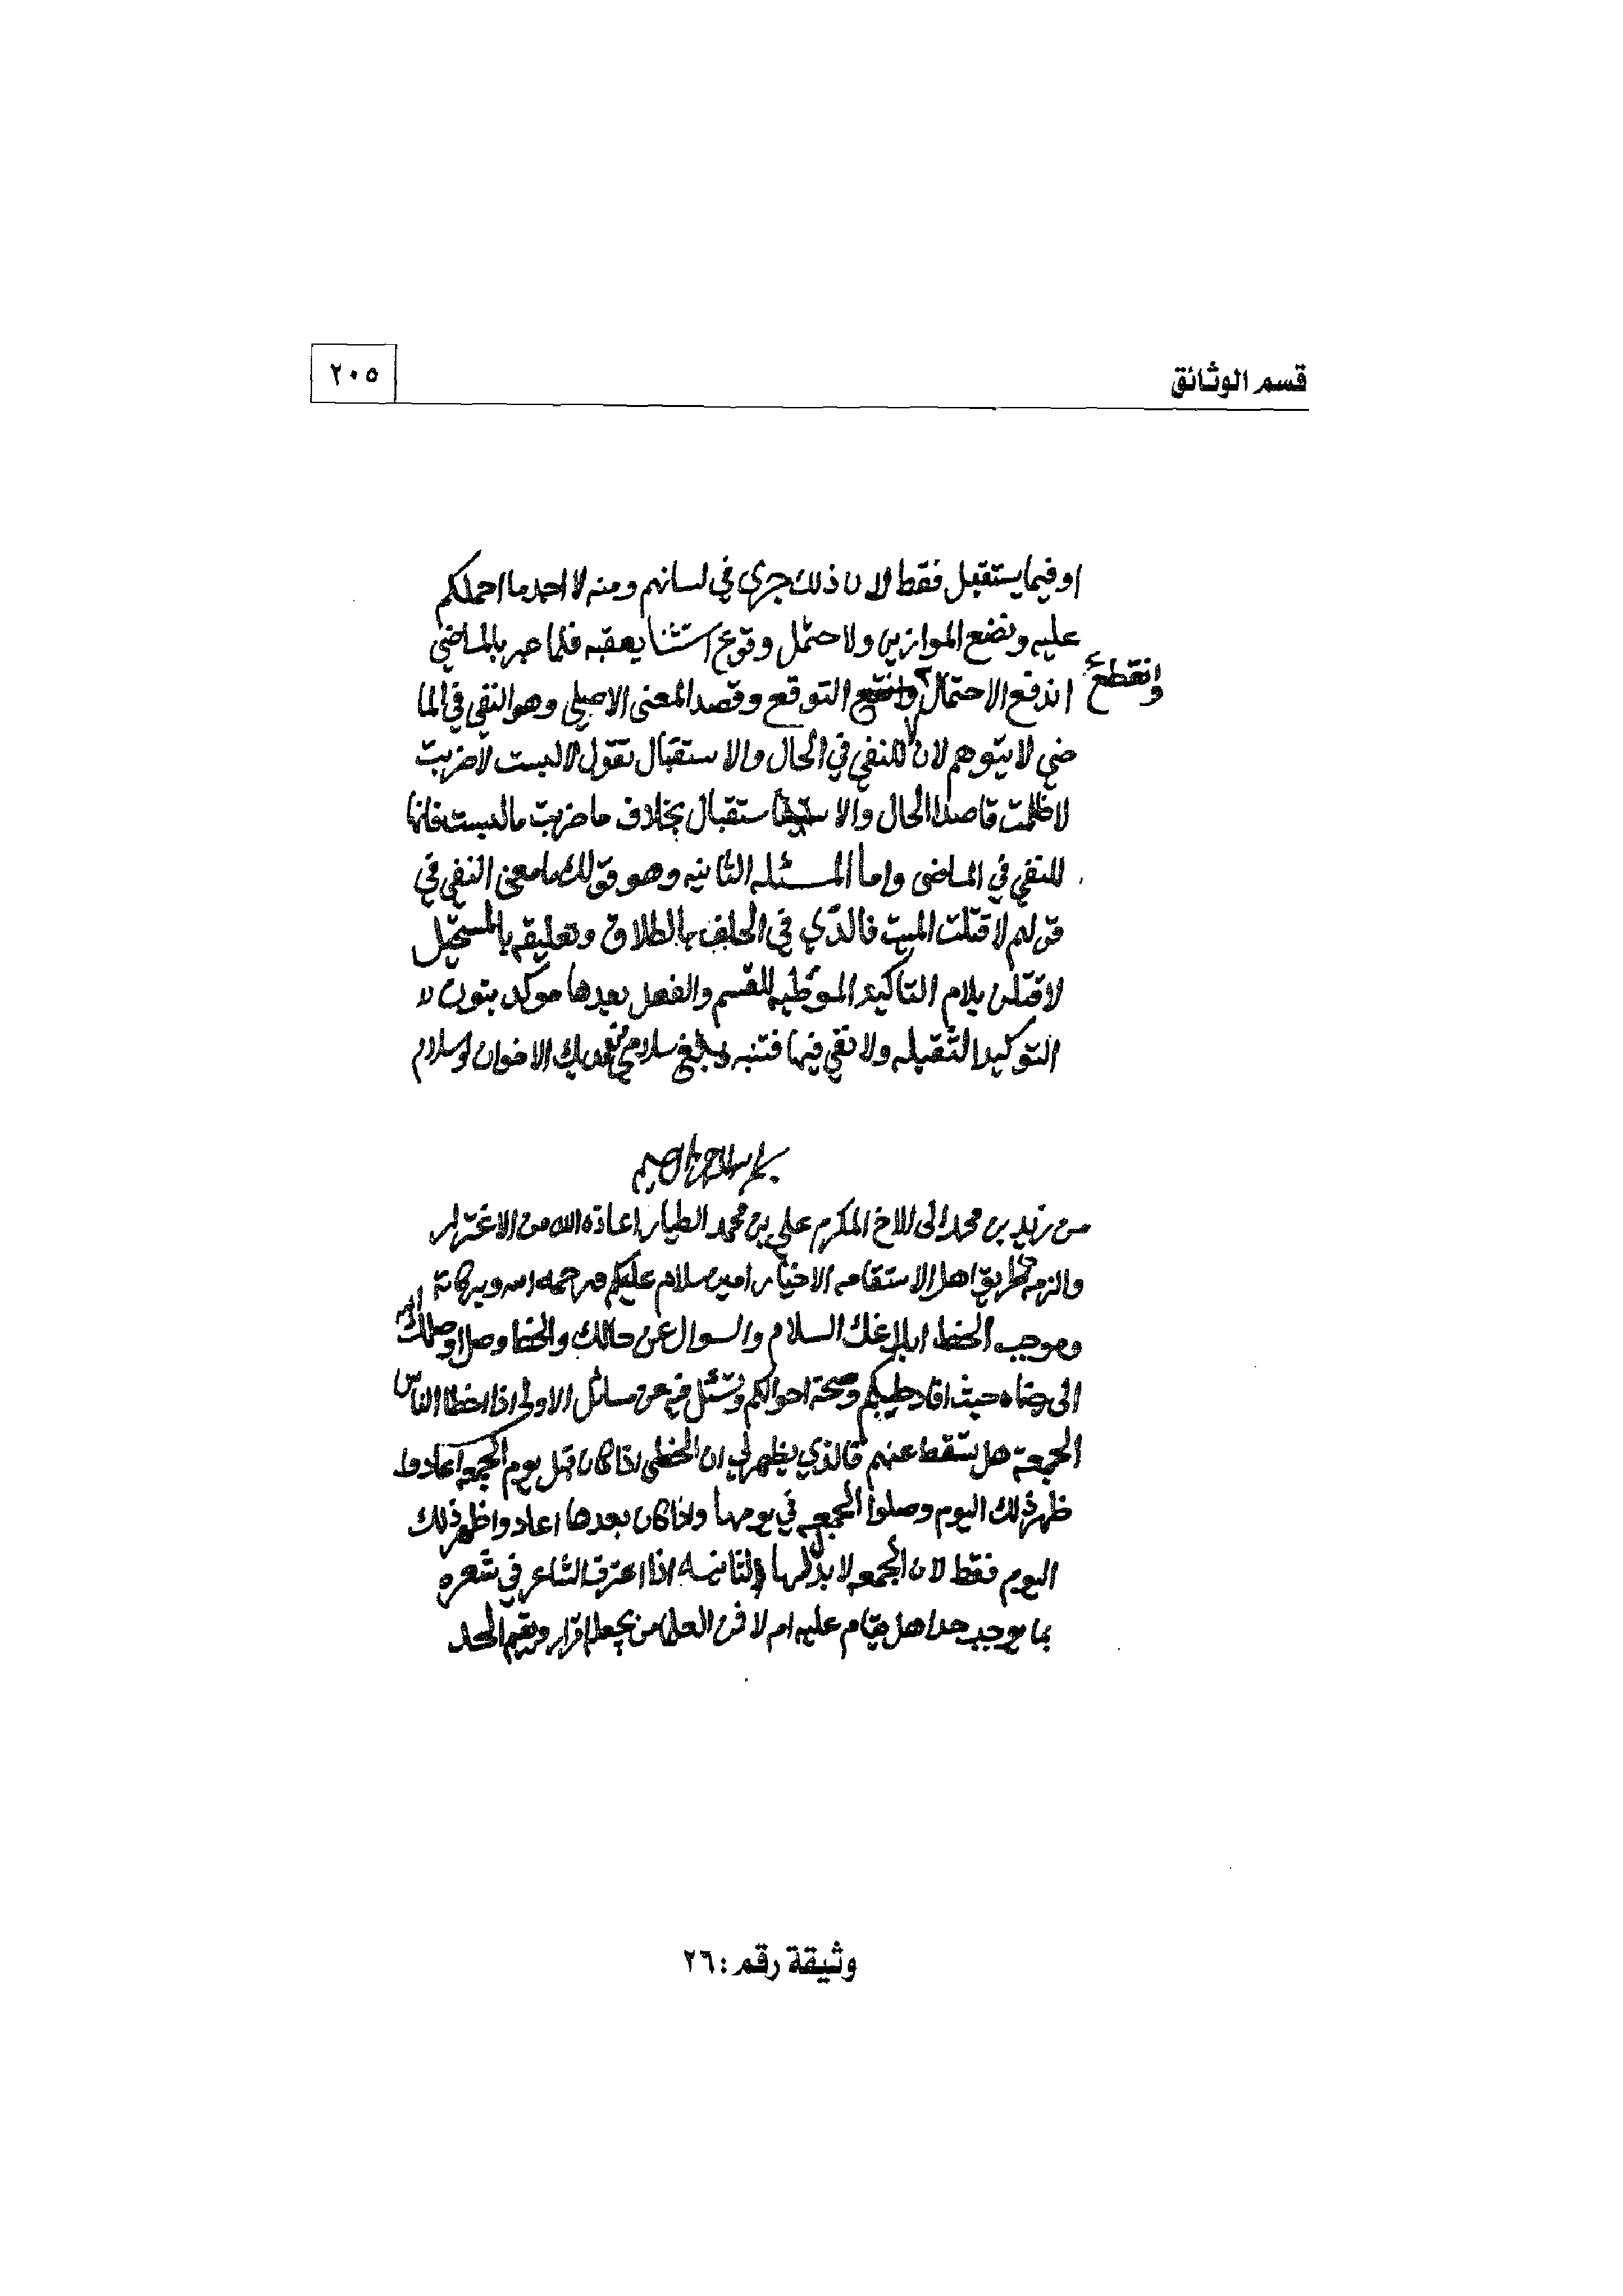 قسم الوثائق
٢٠٥
او فيما يستقبل فقط لان ذلك جرى في لسانهم ومنه لا اجد ما احملكم
عليه ونضع الموازين ولاحتمل وقوع استثنا يعقبه فلما عبر بالماضي
وانقطع
اندفع الاحتمال التوقع وقصد المعنى الاصلي وهو النفي في الما
ضي لا يتوهم لان لا للنفي في الحال والاستقبال تقول لا لبست لا ضربت
لا ظلمت قاصدا الحال والاستقبال بخلاف ما ضربت ما لبست فانها
للنفي في الماضي واما المسئله الثانيه وهو قولك ما معنى النفي في
قولهم لا قتلت الميت فالذي في الحلف بالطلاق وتعليقه بالمستحيل
لاقتلن بلام التاكيد الموطيه للقسم والفعل بعدها موكد بنون
التوكيد الثقيله ولا نفي فيها فتنبه وبلغ سلامي لديك الاخوان والسلام
بسم الله الرحمن الرحيم
من زيد بن محمد الى الاخ المكرم علي بن محمد الطيار اعاذه الله من الاغترار
والزمه طريق اهل الاستقامه الاخيار امين سلام عليكم ورحمه الله وبركاته
وموجب الخط ابلاغك السلام والسوال عن حالك والخط وصل اوصلك الله
الى رضاه حيث افاد طيبكم وصحة احوالكم وتسئل فيه عن مسائل الاولى اذا اخطا الناس
الجمعة هل تسقط عنهم فالذي يظهر لي ان الخطى اذا كان قبل يوم الجمعه اعادوا
ظهر ذلك اليوم وصلوا الجمعه في يومها واذا كان بعدها اعادوا ظهر ذلك
اليوم فقط لان الجمعه لا بدل لها الثانيه اذا اعترف الشاعر في شعره
بما يوجب حدا هل يقام عليه ام لا فمن العلما من يجعله اقرار ويقيم الحد
وثيقة رقم : ٢٦